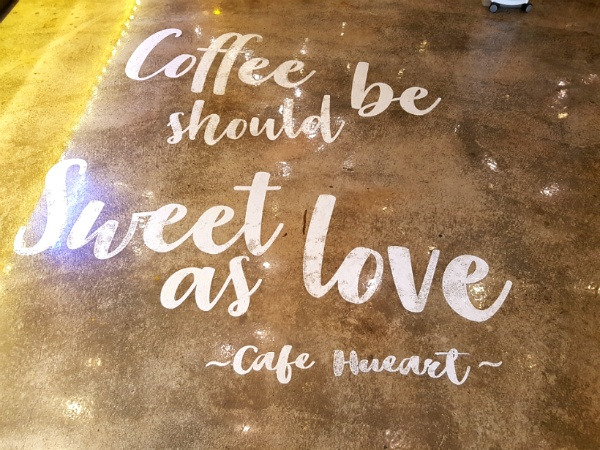 Coffee should be
Sweet as love
~Cafe Hueart~